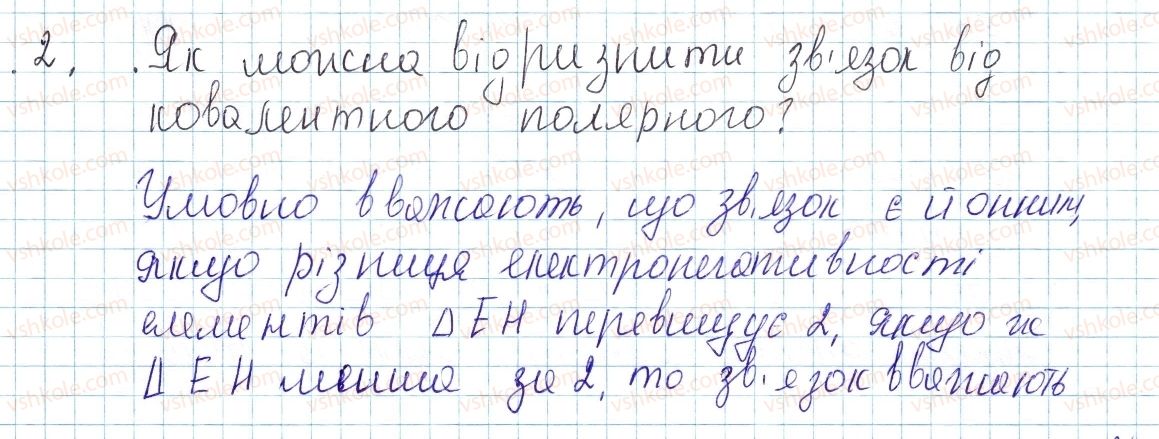 2. Як можна відризнити зв'язок від
ковалентного полярного?
Умовно вважають, що зв'язок є йонним,
якщо різниця електронегативності
елементів ΔЕН перевищує 2, якщо ж
ΔЕН менша за 2, то зв'язок вважають